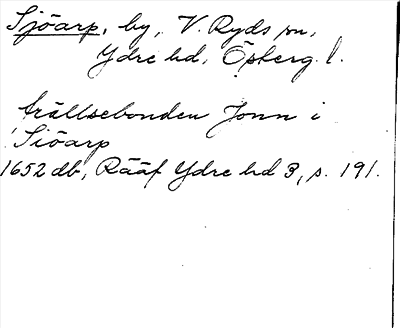 Sjöarp, by, V. Ryds sn,
Ydre hd, Österg. l.
frällsebonden Jonn i
Siöarp
1652 db, Rääf Ydre hd 3, s. 191.